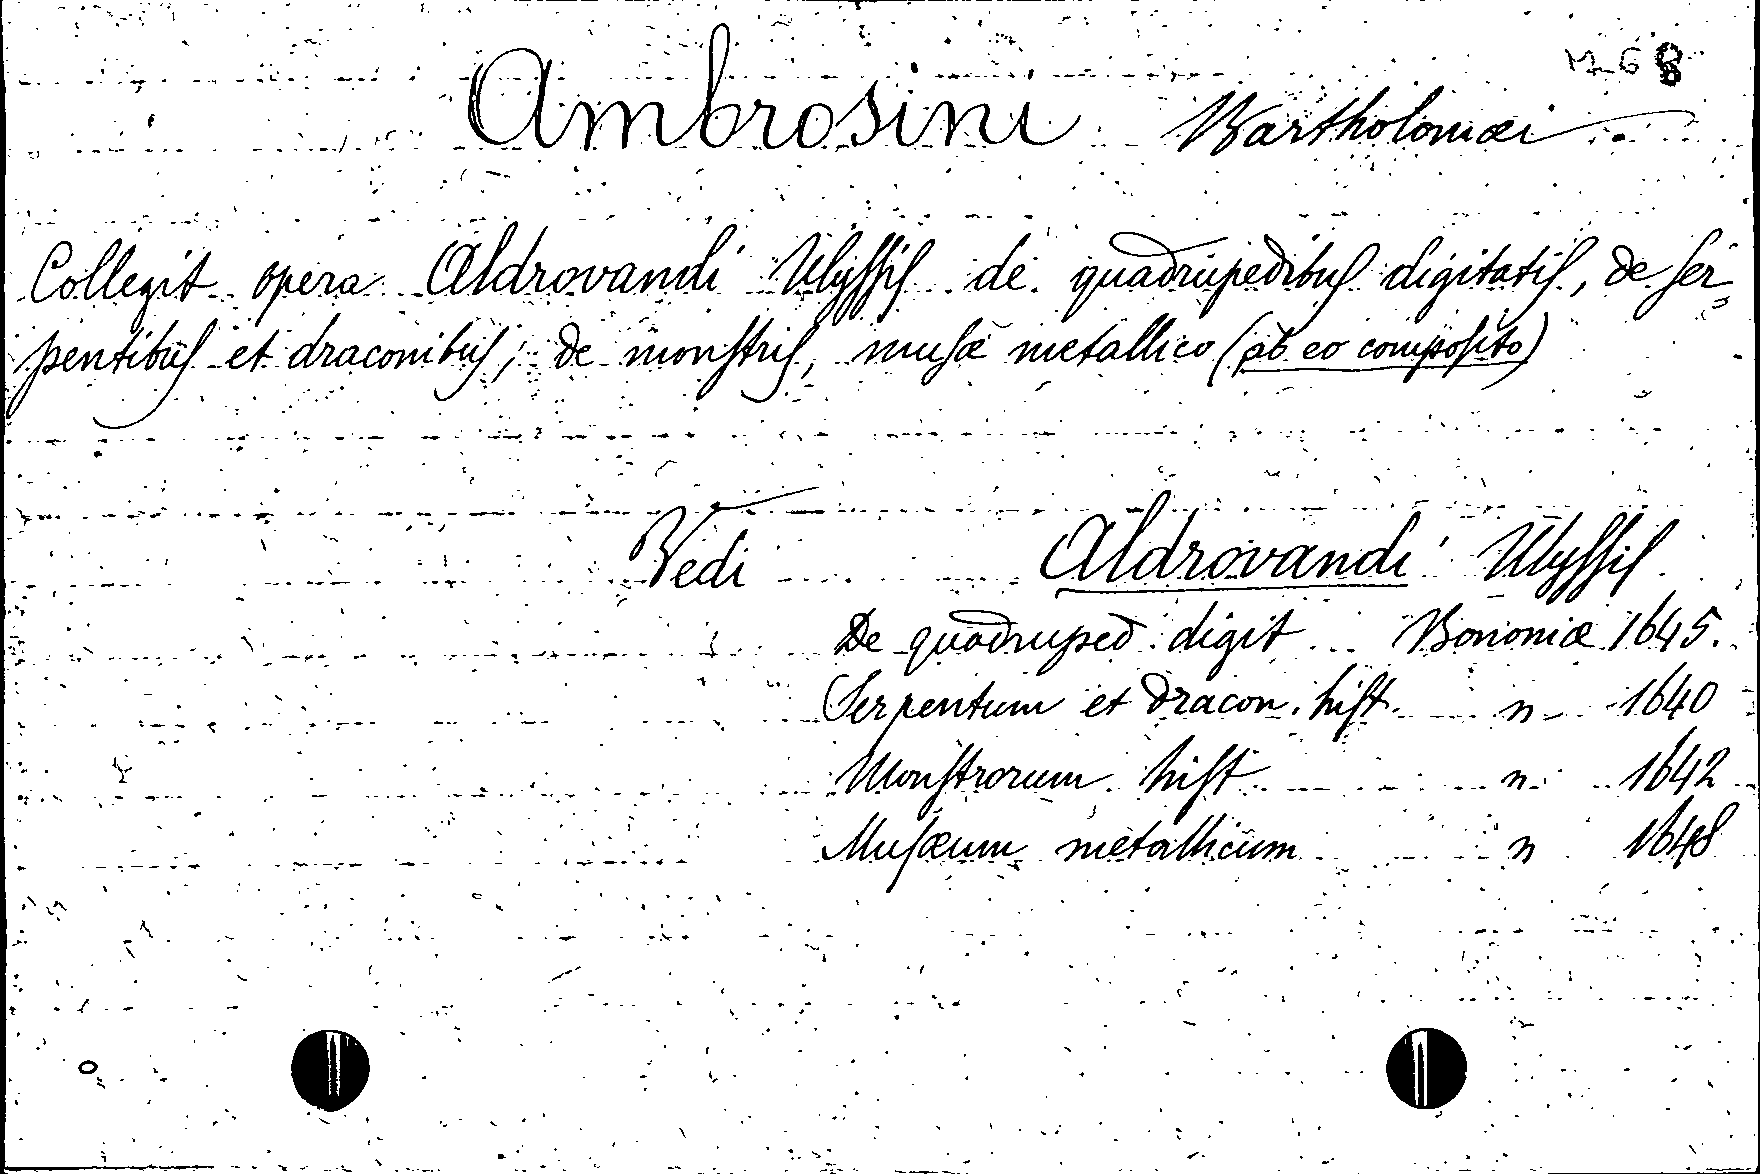 1768
Ambrosini Bartholomæi
Collegit opera Aldrovandi Ulyſſiſ de quadrupedibuſ digitatiſ, de ſer-
pentibuſ et draconibuſ; de monſtriſ, muſæ metallico (ab eo compoſito)
Vedi Aldrovandi Ulyſſiſ
De quadruped. digit Bononiæ 1645.
Serpentum et dracon. hiſt. n 1640
Monſtrorum hiſt n 1642
Muſæum metallicum n 1648